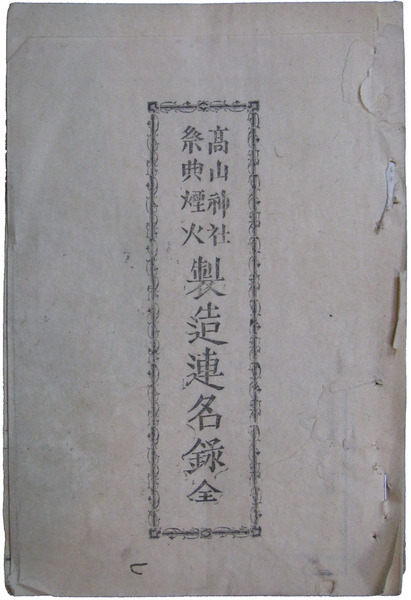 髙山神社
祭典煙火
製造連名録全